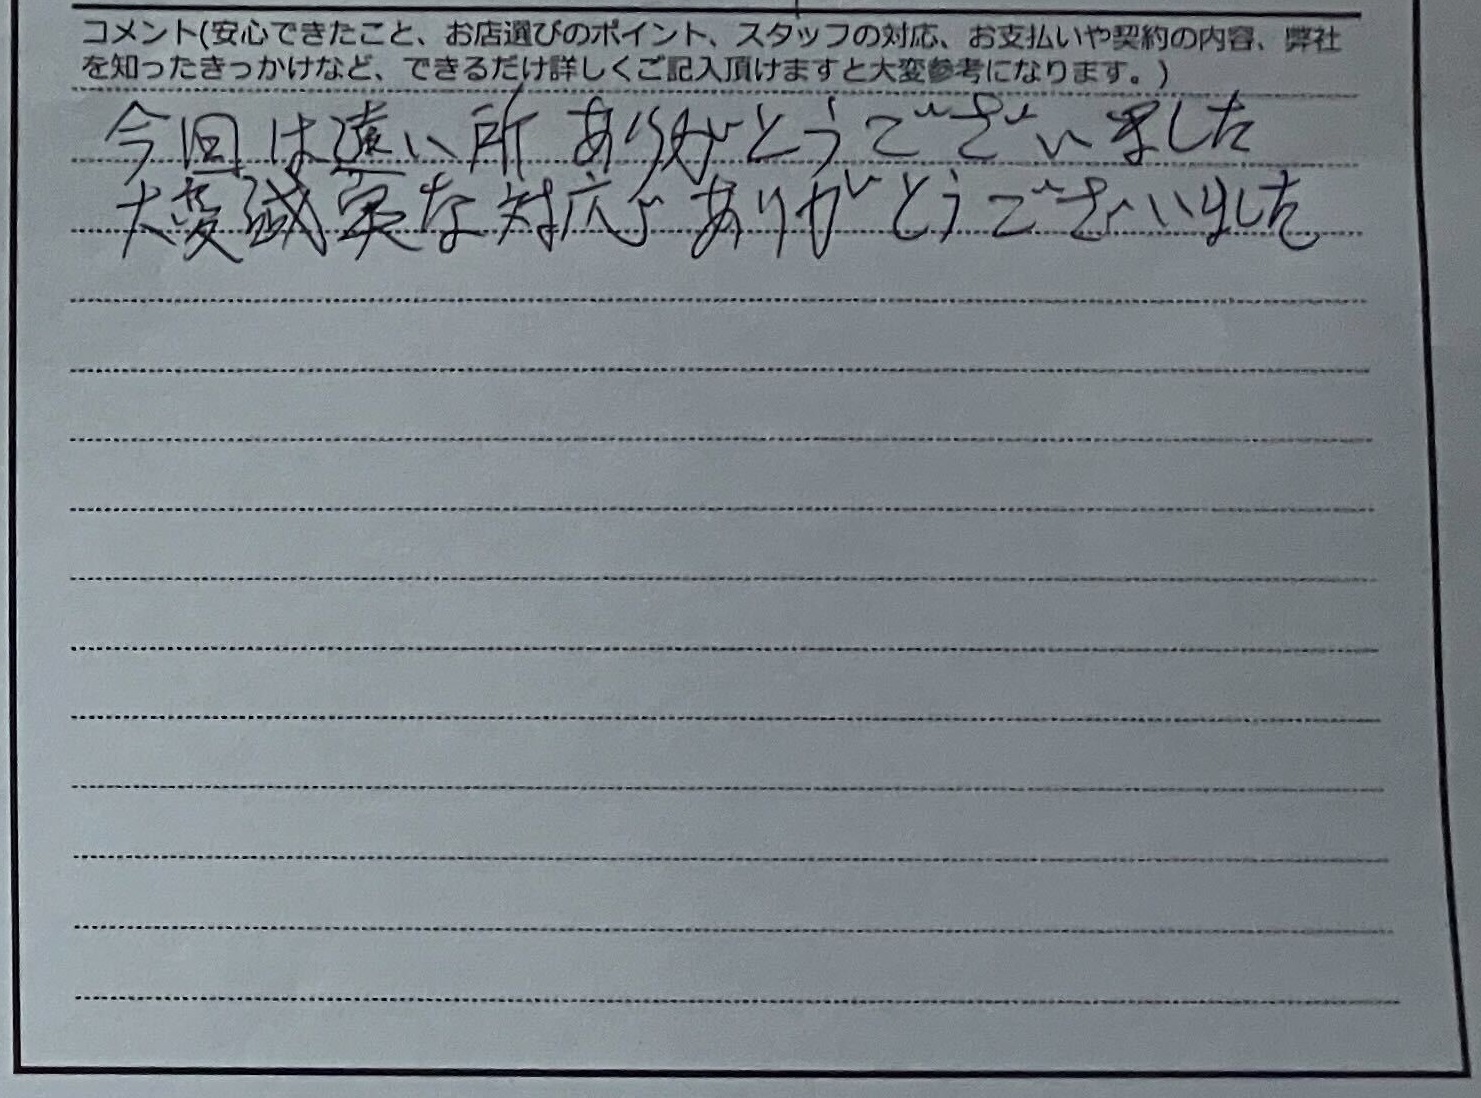 コメント(安心できたこと、お店選びのポイント、スタッフの対応、お支払いや契約の内容、弊社
を知ったきっかけなど、できるだけ詳しくご記入頂けますと大変参考になります。)
今回は遠い所ありがとうございました
大変誠実な対応でありがとうございました